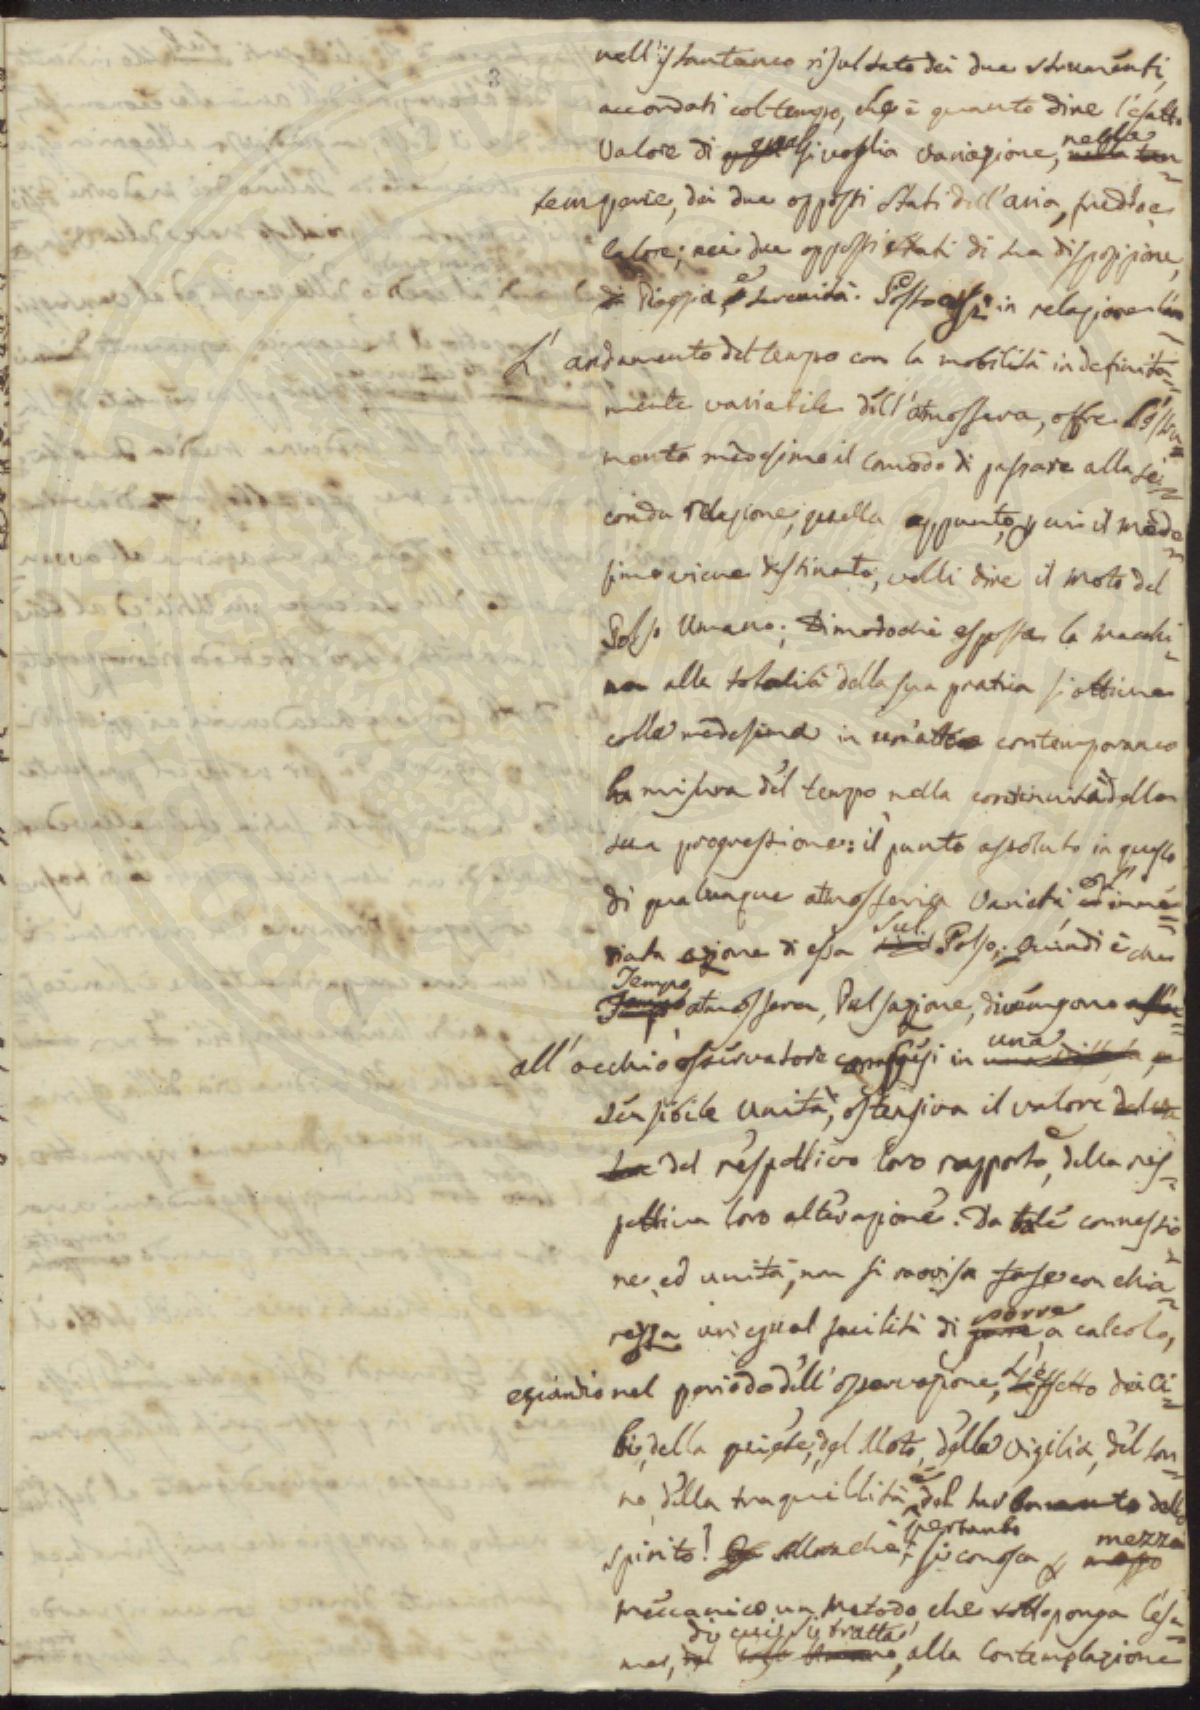 3
nell'istantaneo risultato dei due strumenti,
accordati col tempo, che è quanto dire l'esatto
Valore di qual si voglia variazione, nelle
temperie, dei due opposti stati dell'aria, freddo e
calore; nei due opposti stati di sua disposizione,
di Pioggia, e serenità. Posto così in relazione
L'andamento del tempo con la mobilità indefinita-
mente variabile dell'atmosfera, offre l'istru-
mento medesimo il comodo di passare alla se-
conda relazione, quella appunto, a cui il mede-
simo viene destinato, volli dire il moto del
Polso Umano; Dimodoché esposta la macchi-
na alla totalità della sua pratica si ottiene
colla medesima in un'atto contemporaneo
la misura del tempo nella continuità della
sua progressione: il punto assoluto in questo
di qualunque atmosferica varietà ed imme-
diata azione di essa sul Polso; Quindi è che
Tempo atmosfera, Pulsazione, divengono
all'occhio osservatore confusi in una
sensibile unità, ostensiva il valore
del respettivo loro rapporto, e della res-
pettiva loro alterazione. Da tale connessio-
ne, ed unità, non si ravvisa forse con chia-
rezza un egual facilità di porre a calcolo,
eziandio nel periodo dell'osservazione, l'effetto dei Ci-
bi, della quiete, del Moto, della vigilia, del son-
no, della tranquillità, e del turbamento dello
spirito! Allorché pertanto si conosca mezzo
meccanico un metodo, che sottoponga l'esa-
me, di cui si tratta, alla Contemplazione